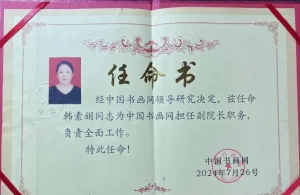 任命书
经中国书画网领导研究决定，兹任命
韩素娟同志为中国书画网担任副院长职务，
负责全面工作。
特此任命！
中国书画网
2024年7月26号